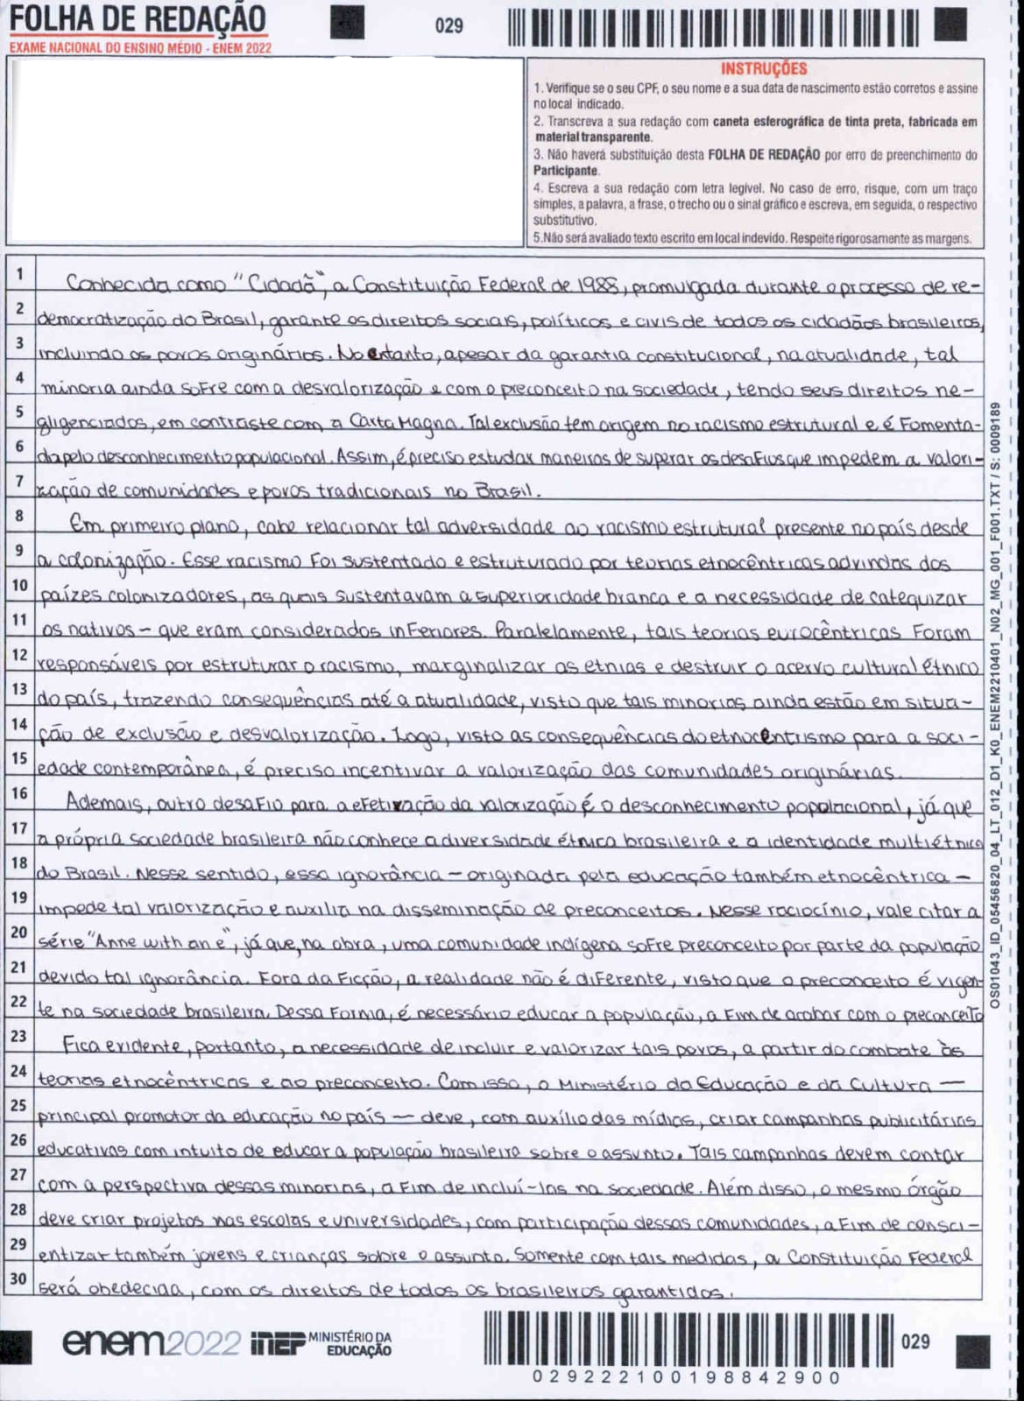 FOLHA DE REDAÇÃO
EXAME NACIONAL DO ENSINO MÉDIO - ENEM 2022
029
INSTRUÇÕES
1. Verifique se o seu CPF, o seu nome e a sua data de nascimento estão corretos e assine
no local indicado.
2. Transcreva a sua redação com caneta esferográfica de tinta preta, fabricada em
material transparente.
3. Não haverá substituição desta FOLHA DE REDAÇÃO por erro de preenchimento do
Participante.
4. Escreva a sua redação com letra legível. No caso de erro, risque, com um traço
simples, a palavra, a frase, o trecho ou o sinal gráfico e escreva, em seguida, o respectivo
substitutivo.
5.Não será avaliado texto escrito em local indevido. Respeite rigorosamente as margens.
1 Conhecida como "Cidadã", a Constituição Federal de 1988, promulgada durante o processo de re-
2 democratização do Brasil, garante os direitos sociais, políticos e civis de todos os cidadãos brasileiros,
3 incluindo os povos originários. No entanto, apesar da garantia constitucional, na atualidade, tal
4 minoria ainda sofre com a desvalorização e com o preconceito na sociedade, tendo seus direitos ne-
5 gligenciados, em contraste com a Carta Magna. Tal exclusão tem origem no racismo estrutural e é fomenta-
6 da pelo desconhecimento populacional. Assim, é preciso estudar maneiras de superar os desafios que impedem a valori-
7 zação de comunidades e povos tradicionais no Brasil.
8 Em primeiro plano, cabe relacionar tal adversidade ao racismo estrutural presente no país desde
9 a colonização. Esse racismo foi sustentado e estruturado por teorias etnocêntricas advindas dos
10 paízes colonizadores, as quais sustentavam a superioridade branca e a necessidade de catequizar
11 os nativos - que eram considerados inferiores. Paralelamente, tais teorias eurocêntricas foram
12 responsáveis por estruturar o racismo, marginalizar as etnias e destruir o acervo cultural étnico
13 do país, trazendo consequências até a atualidade, visto que tais minorias ainda estão em situa-
14 ção de exclusão e desvalorização. Logo, visto as consequências do etnocentrismo para a soci-
15 edade contemporânea, é preciso incentivar a valorização das comunidades originárias.
16 Ademais, outro desafio para a efetivação da valorização é o desconhecimento populacional, já que
17 a própria sociedade brasileira não conhece a diversidade étnica brasileira e a identidade multiétnica
18 do Brasil. Nesse sentido, essa ignorância - originada pela educação também etnocêntrica -
19 impede tal valorização e auxilia na disseminação de preconceitos. Nesse raciocínio, vale citar a
20 série "Anne with an e", já que, na obra, uma comunidade indígena sofre preconceito por parte da população
21 devido tal ignorância. Fora da ficção, a realidade não é diferente, visto que o preconceito é vigen-
22 te na sociedade brasileira. Dessa forma, é necessário educar a população, a fim de acabar com o preconceito
23 Fica evidente, portanto, a necessidade de incluir e valorizar tais povos, a partir do combate às
24 teorias etnocêntricas e ao preconceito. Com isso, o Ministério da Educação e da Cultura —
25 principal promotor da educação no país — deve, com auxílio das mídias, criar campanhas publicitárias
26 educativas com intuito de educar a população brasileira sobre o assunto. Tais campanhas devem contar
27 com a perspectiva dessas minorias, a fim de incluí-las na sociedade. Além disso, o mesmo órgão
28 deve criar projetos nas escolas e universidades, com participação dessas comunidades, a fim de consci-
29 entizar também jovens e crianças sobre o assunto. Somente com tais medidas, a Constituição Federal
30 será obedecida, com os direitos de todos os brasileiros garantidos.
OS01043_ID_05456820_04_LT_012_D1_K0_ENEM2210401_N02_MG_001_F001.TXT / S: 0009189
enem2022 inep MINISTÉRIO DA
EDUCAÇÃO
029
029222100198842900